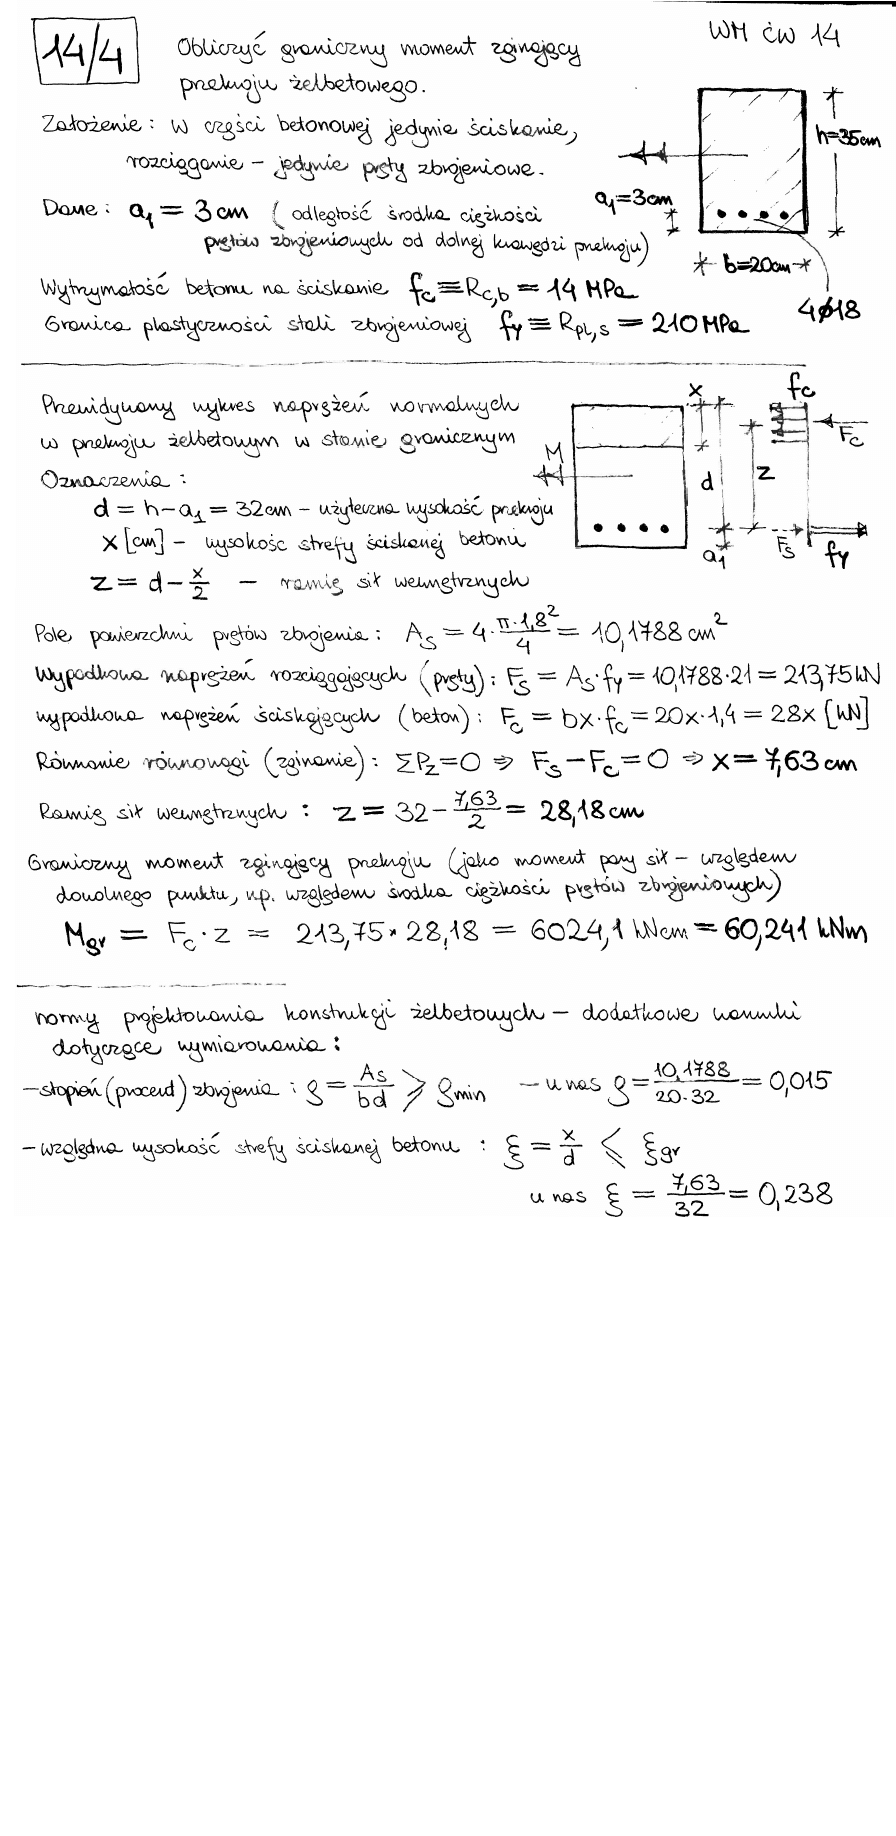 14/4
WM ĆW 14
Obliczyć graniczny moment zginający
przekroju żelbetowego.
Założenie: w części betonowej jedynie ściskanie,
rozciąganie – jedynie pręty zbrojeniowe.
Dane: a₁ = 3 cm (odległość środka ciężkości
prętów zbrojeniowych od dolnej krawędzi przekroju)
Wytrzymałość betonu na ściskanie fc ≡ Rc,b = 14 MPa
Granica plastyczności stali zbrojeniowej fy ≡ Rpl,s = 210 MPa
h=35cm
a₁=3cm
b=20cm
4ϕ18
Przewidywany wykres naprężeń normalnych
w przekroju żelbetowym w stanie granicznym
Oznaczenia:
d = h – a₁ = 32 cm – użyteczna wysokość przekroju
x [cm] – wysokość strefy ściskanej betonu
z = d – x/2 – ramię sił wewnętrznych
M
x
d
a₁
z
fc
Fc
Fs
fy
Pole powierzchni prętów zbrojenia: As = 4 · π·1,8²/4 = 10,1788 cm²
Wypadkowa naprężeń rozciągających (pręty): Fs = As·fy = 10,1788·21 = 213,75 kN
wypadkowa naprężeń ściskających (beton): Fc = bx·fc = 20x·1,4 = 28x [kN]
Równanie równowagi (zginanie): ΣPz=0 ⇒ Fs – Fc = 0 ⇒ x = 7,63 cm
Ramię sił wewnętrznych: z = 32 – 7,63/2 = 28,18 cm
Graniczny moment zginający przekroju (jako moment pary sił – względem
dowolnego punktu, np. względem środka ciężkości prętów zbrojeniowych)
Mgr = Fc · z = 213,75 · 28,18 = 6024,1 kNcm = 60,241 kNm
normy projektowania konstrukcji żelbetowych – dodatkowe warunki
dotyczące wymiarowania:
– stopień (procent) zbrojenia: ρ = As/bd ⩾ ρmin – u nas ρ = 10,1788/20·32 = 0,015
– względna wysokość strefy ściskanej betonu: ξ = x/d ⩽ ξgr
u nas ξ = 7,63/32 = 0,238